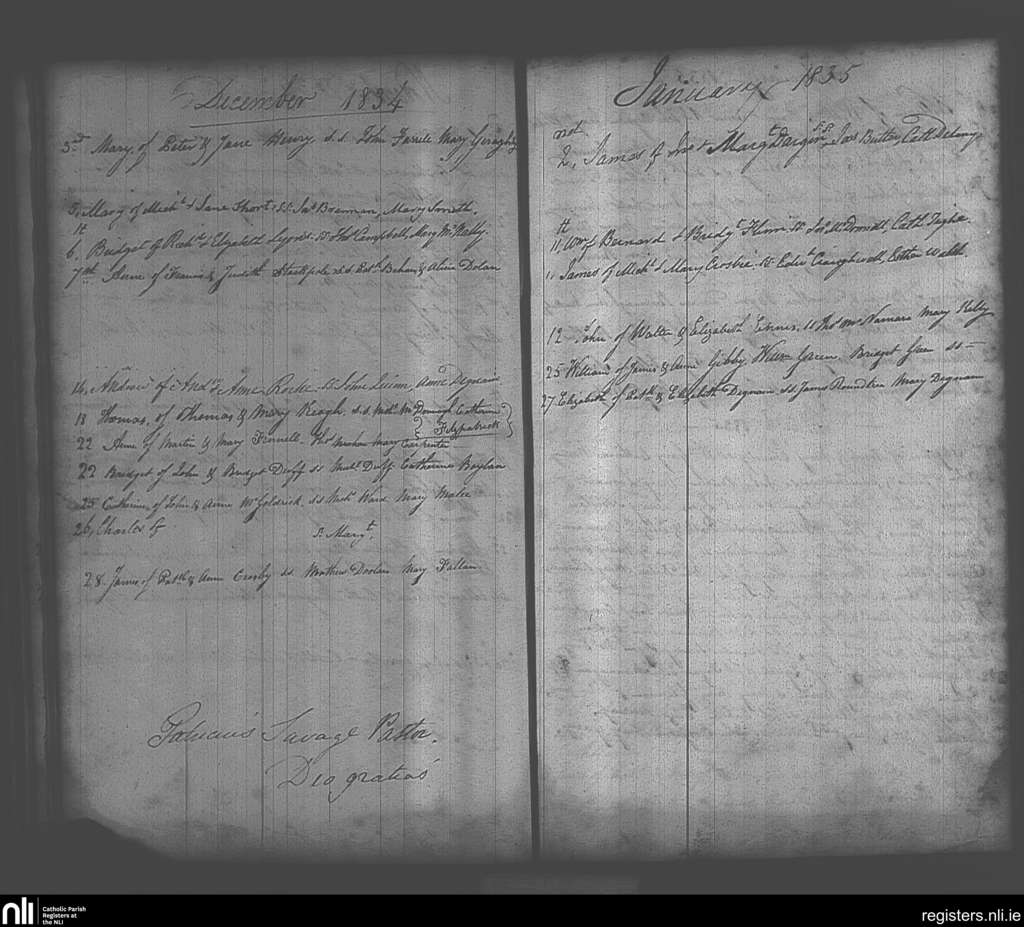 December 1834
3rd Mary of Peter & Jane Henry. s.s. John Farrell Mary Geraghty
5, Mary of Michl & Jane Short. s.s. Jas Brennan, Mary Smith.
6th, Bridget of Richd & Elizabeth Lyons. ss. Thos Campbell, Mary McNally.
7th Anne of Francis & Judith Stackpole s.s. Patk Behan & Alicia Dolan
14, Andrew of Andw & Anne Rorke. ss. John Quinn, Anne Degnan
18 Thomas, of Thomas & Mary Keogh. s.s. Michl McDonough Catherine
Fitzpatrick
22 Anne of Martin & Mary Fennell. Thos Mahon Mary Carpenter
22 Bridget of John & Bridget Duff ss Michl Duff Catherine Boylan
25 Catherine of John & Anne McGoldrick. ss Michl Ward Mary Malee
26, Charles of
S. Margt.
28. James of Patk & Anne Crosby ss. Matthew Doolan Mary Fallan
Savage Pastor.
Deo gratias
January 1835
2nd, James of Jno & Margt Dargin s.s. Jas Butler, Cath Delany
11th, Wm of Bernard & Bridgt Flinn. ss. Jno McDonnell, Cath Tighe.
11 James of Michl & Mary Crosbie. ss. Edwd Craughwell, Esther Walsh.
12 John of Walter & Elizabeth Ennis. ss Thos McNamara Mary Kelly
25 William of James & Anne Gibby. William Green, Bridget Green ss —
27 Elizabeth of Patk & Elizabeth Degnan ss James Roundtree Mary Degnan
nli
Catholic Parish
Registers at
the NLI
registers.nli.ie